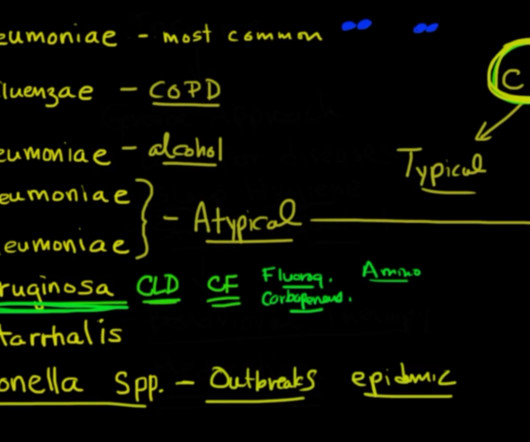 eumoniae - most common
C
luenzae - COPD
eumoniae - alcohol
Typical
eumoniae
} - Atypical
eumoniae
ruginosa CLD CF Fluoroq. Amino
Carbapenems.
tarrhalis
onella Spp. - Outbreaks epidemic